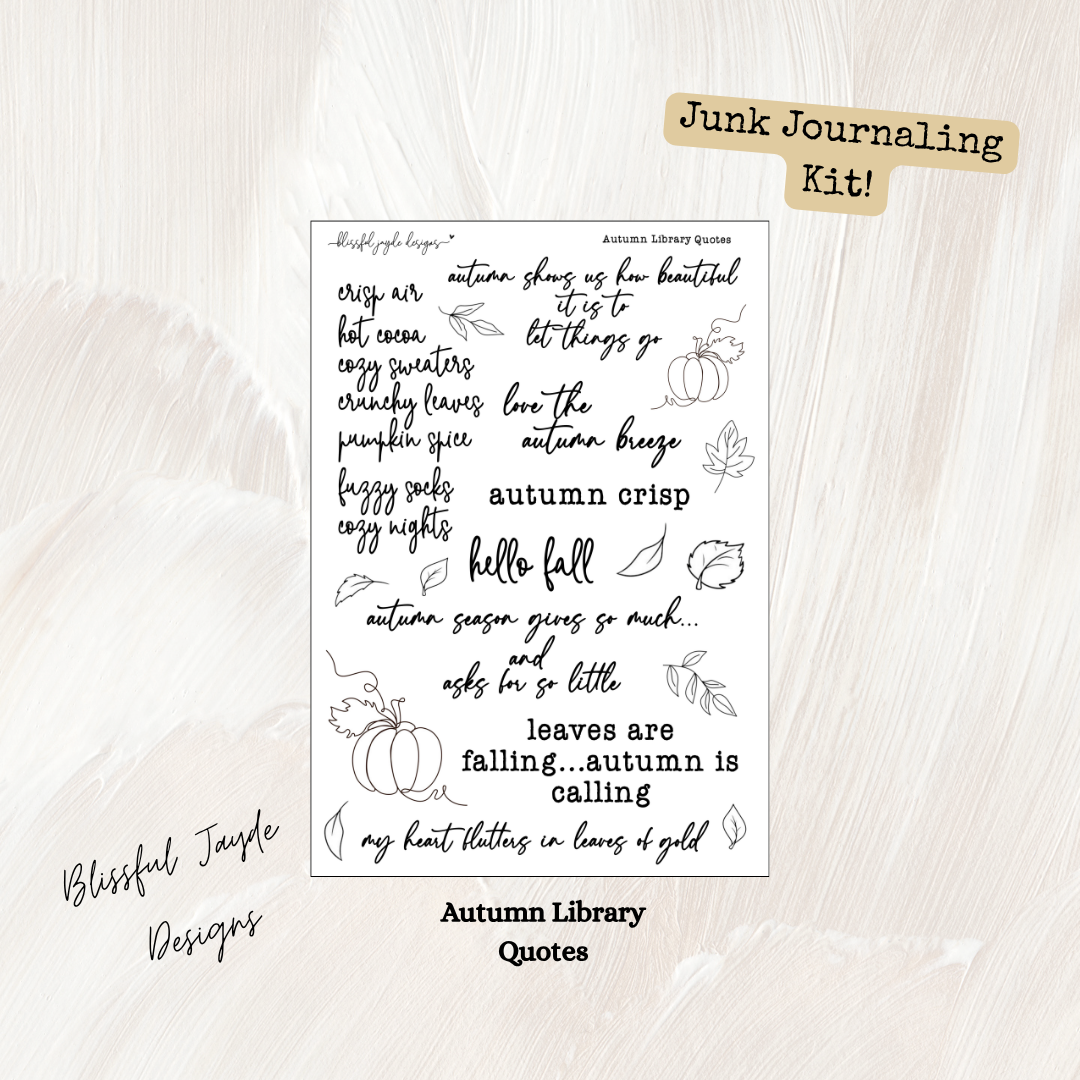 Junk Journaling
Kit!
blissful jayde designs
Autumn Library Quotes
crisp air
hot cocoa
cozy sweaters
crunchy leaves
pumpkin spice
fuzzy socks
cozy nights
autumn shows us how beautiful
it is to
let things go
love the
autumn breeze
autumn crisp
hello fall
autumn season gives so much...
and
asks for so little
leaves are
falling...autumn is
calling
my heart flutters in leaves of gold
Blissful Jayde
Designs
Autumn Library
Quotes